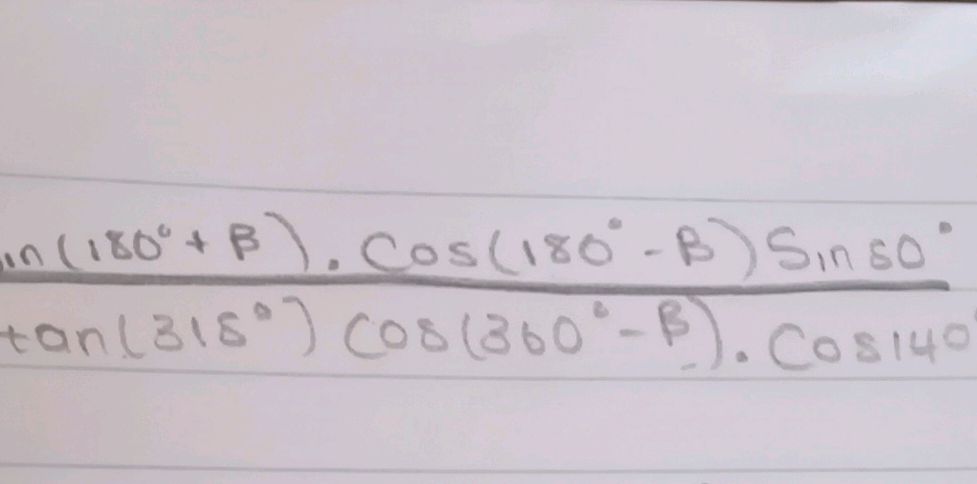 in(180°+β).Cos(180°-β)Sin50°
tan(315°)Cos(360°-β).Cos140°